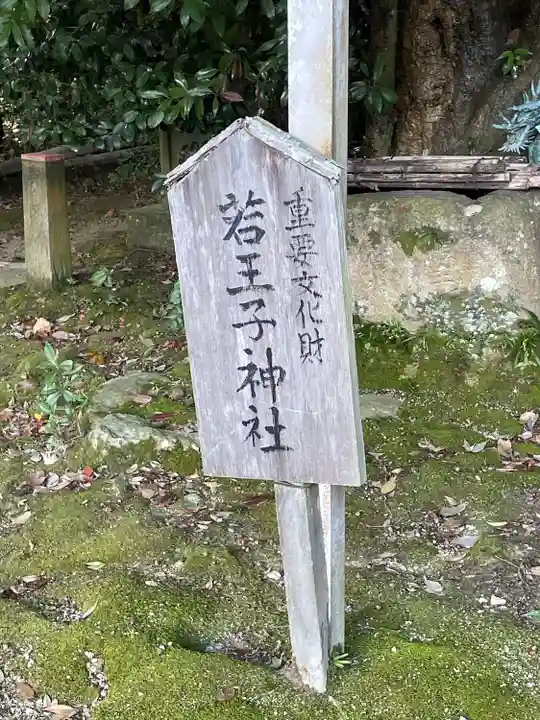 重要文化財
若王子神社